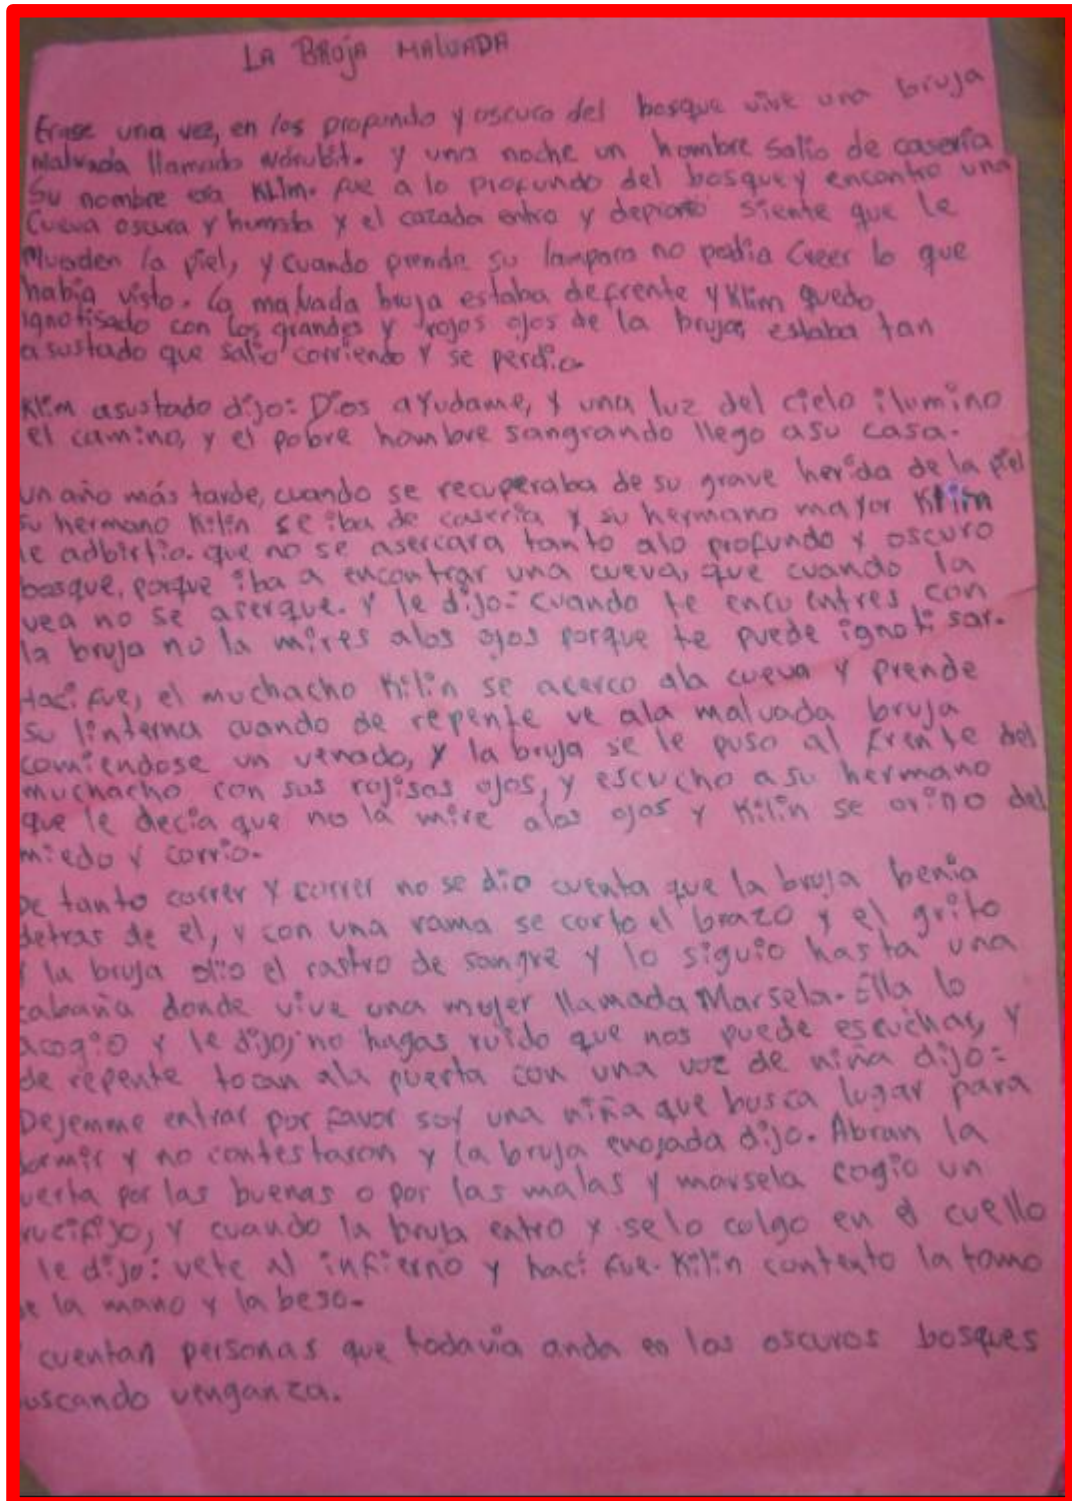 LA BROjA MALVADA
Erase una vez, en los propundo y oscuro del bosque vive una bruja
Malvada llamado Wdrubit. y una noche un hombre salio de caseria
Su nombre era Klim. fue a lo profundo del bosque y encontro una
Cueva oscura y humeda y el cazada entro y depronto siente que le
Muerden la piel, y cuando prende su lampara no podia creer lo que
habia visto. La malvada bruja estaba defrente y Klim quedo
ignotisado con los grandes y rojos ojos de la bruja, estaba tan
asustado que salio corriendo y se perdio.
Klim asustado dijo: Dios ayudame, y una luz del cielo ilumino
el camino, y el pobre hombre sangrando llego asu casa.
un año más tarde, cuando se recuperaba de su grave herida de la piel
su hermano Kilin se iba de caseria y su hermano mayor Klim
le adbirtio. que no se asercara tanto alo profundo y oscuro
bosque, porque iba a encontrar una cueva, que cuando la
vea no se acerque. Y le dijo: cuando te encuentres con
la bruja no la mires alos ojos porque te puede ignotisar.
Haci fue, el muchacho Kilin se acerco ala cueva y prende
su linterna cuando de repente ve ala malvada bruja
comiendose un venado, y la bruja se le puso al frente del
muchacho con sus rojisos ojos, y escucho a su hermano
que le decia que no la mire alos ojos y Kilin se orino del
miedo y corrio.
De tanto correr y correr no se dio cuenta que la bruja benia
detras de el, y con una rama se corto el brazo y el grito
y la bruja olio el rastro de sangre y lo siguio hasta una
cabaña donde vive una mujer llamada Marsela. Ella lo
acogio y le dijo; no hagas ruido que nos puede escuchar, y
de repente tocan ala puerta con una voz de niña dijo:
Dejemme entrar por favor soy una niña que busca lugar para
dormir y no contestaron y la bruja enojada dijo. Abran la
uerta por las buenas o por las malas y marsela cogio un
rucifijo, y cuando la bruja entro y se lo colgo en el cuello
le dijo: vete al infierno y haci fue. Kilin contento la tomo
de la mano y la beso.
Y cuentan personas que todavia anda en los oscuros bosques
uscando venganza.